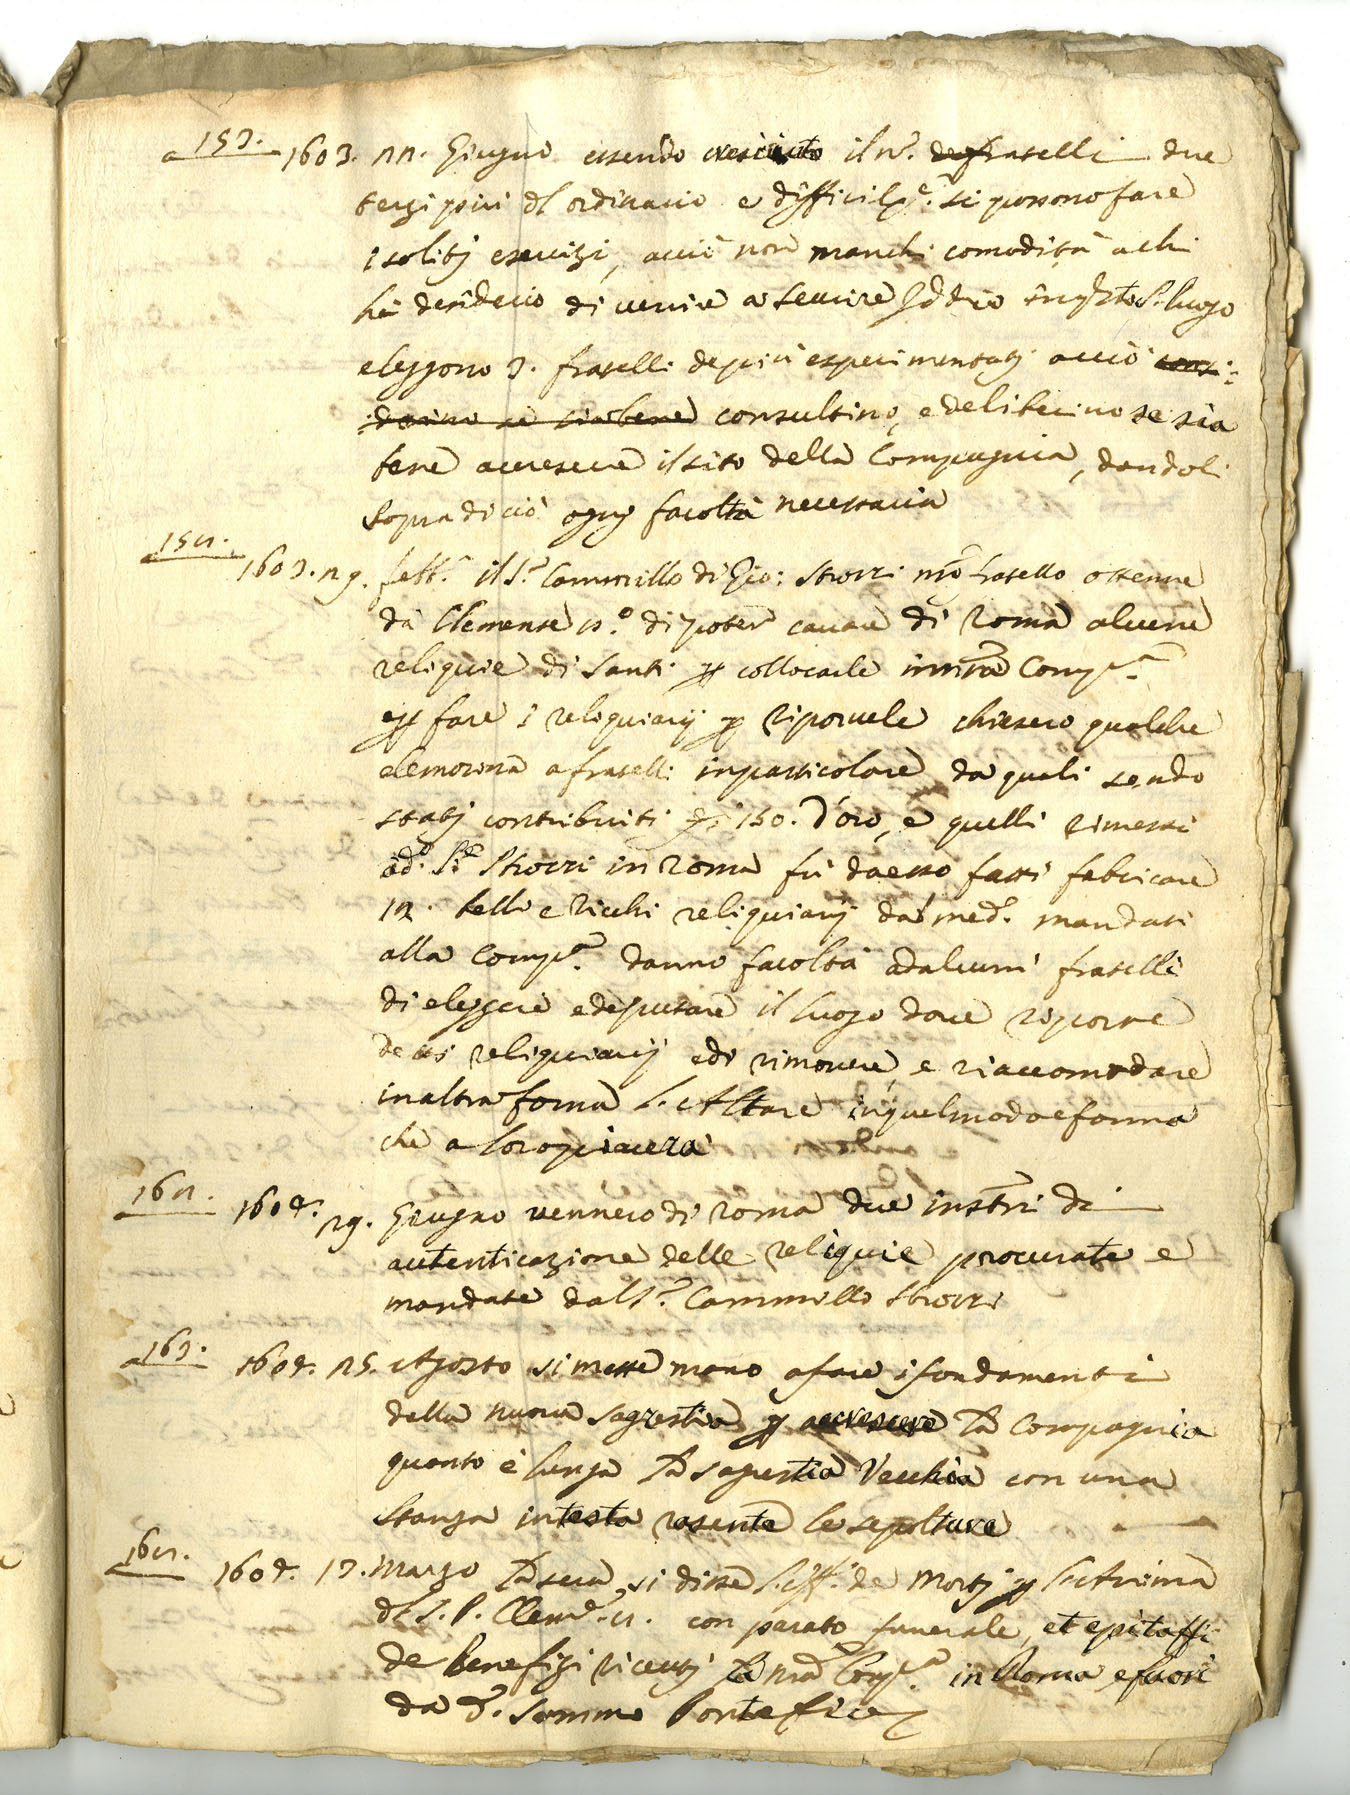 153. 1603. 22. Giugno essendo cresciuto il n.º de fratelli due
terzi piu dl ordinario e difficilm.e si possono fare
i soliti esercizi, acciò non manchi comodità a chi
hà desiderio di venire a servire Iddio in q.sto S. luogo
eleggono 3. fratelli de piu esperimentati acciò consi:
:derino se sia bene consultino, e deliberino se sia
bene accrescere il sito della Compagnia, dandoli
sopra di ciò ogni facoltà necessaria
154. 1603. 29. Febb.º il S.r Cammillo di Gio: Strozzi nrõ fratello ottenne
da Clemente 8.º di poter cavare di Roma alcune
reliquie di Santi p collocarle in nrã Comp.a
e p fare i reliquiarij p riporvele chiesero qualche
elemosina a fratelli in particolare da quali sendo
stati contribuiti 150. d'oro, e quelli rimessi
a d.º S.r Strozzi in Roma fù da esso fatti fabricare
12. belli e ricchi reliquiarij dal med.º mandati
alla Comp.a danno facoltà ad alcuni fratelli
di eleggere e deputare il luogo dove riporre
detti reliquiarij e di rimovere, e riaccomodare
in altra forma l'Altare in quel modo e forma
che a loro piacerà
162. 1604. 29. Giugno vennero di Roma due instrũti di
autenticazione delle reliquie procurate e
mandate dal S.r Cammillo Strozzi
163. 1604. 25. Agosto si messe mano a fare i fondamenti
della nuova sagrestia p accrescere la Compagnia
quanto è lunga la sagrestia Vecchia con una
stanza in testa rasente le sepolture
164. 1604. 13. Marzo la sera si disse l'Uff.º de Morti p l'Anima
dl S. P. Clem.e 8. con parato funerale, et epitaffi
de benefizi ricevuti la nrã Comp.a in Roma, e fuori
da d.º Sommo Pontefice